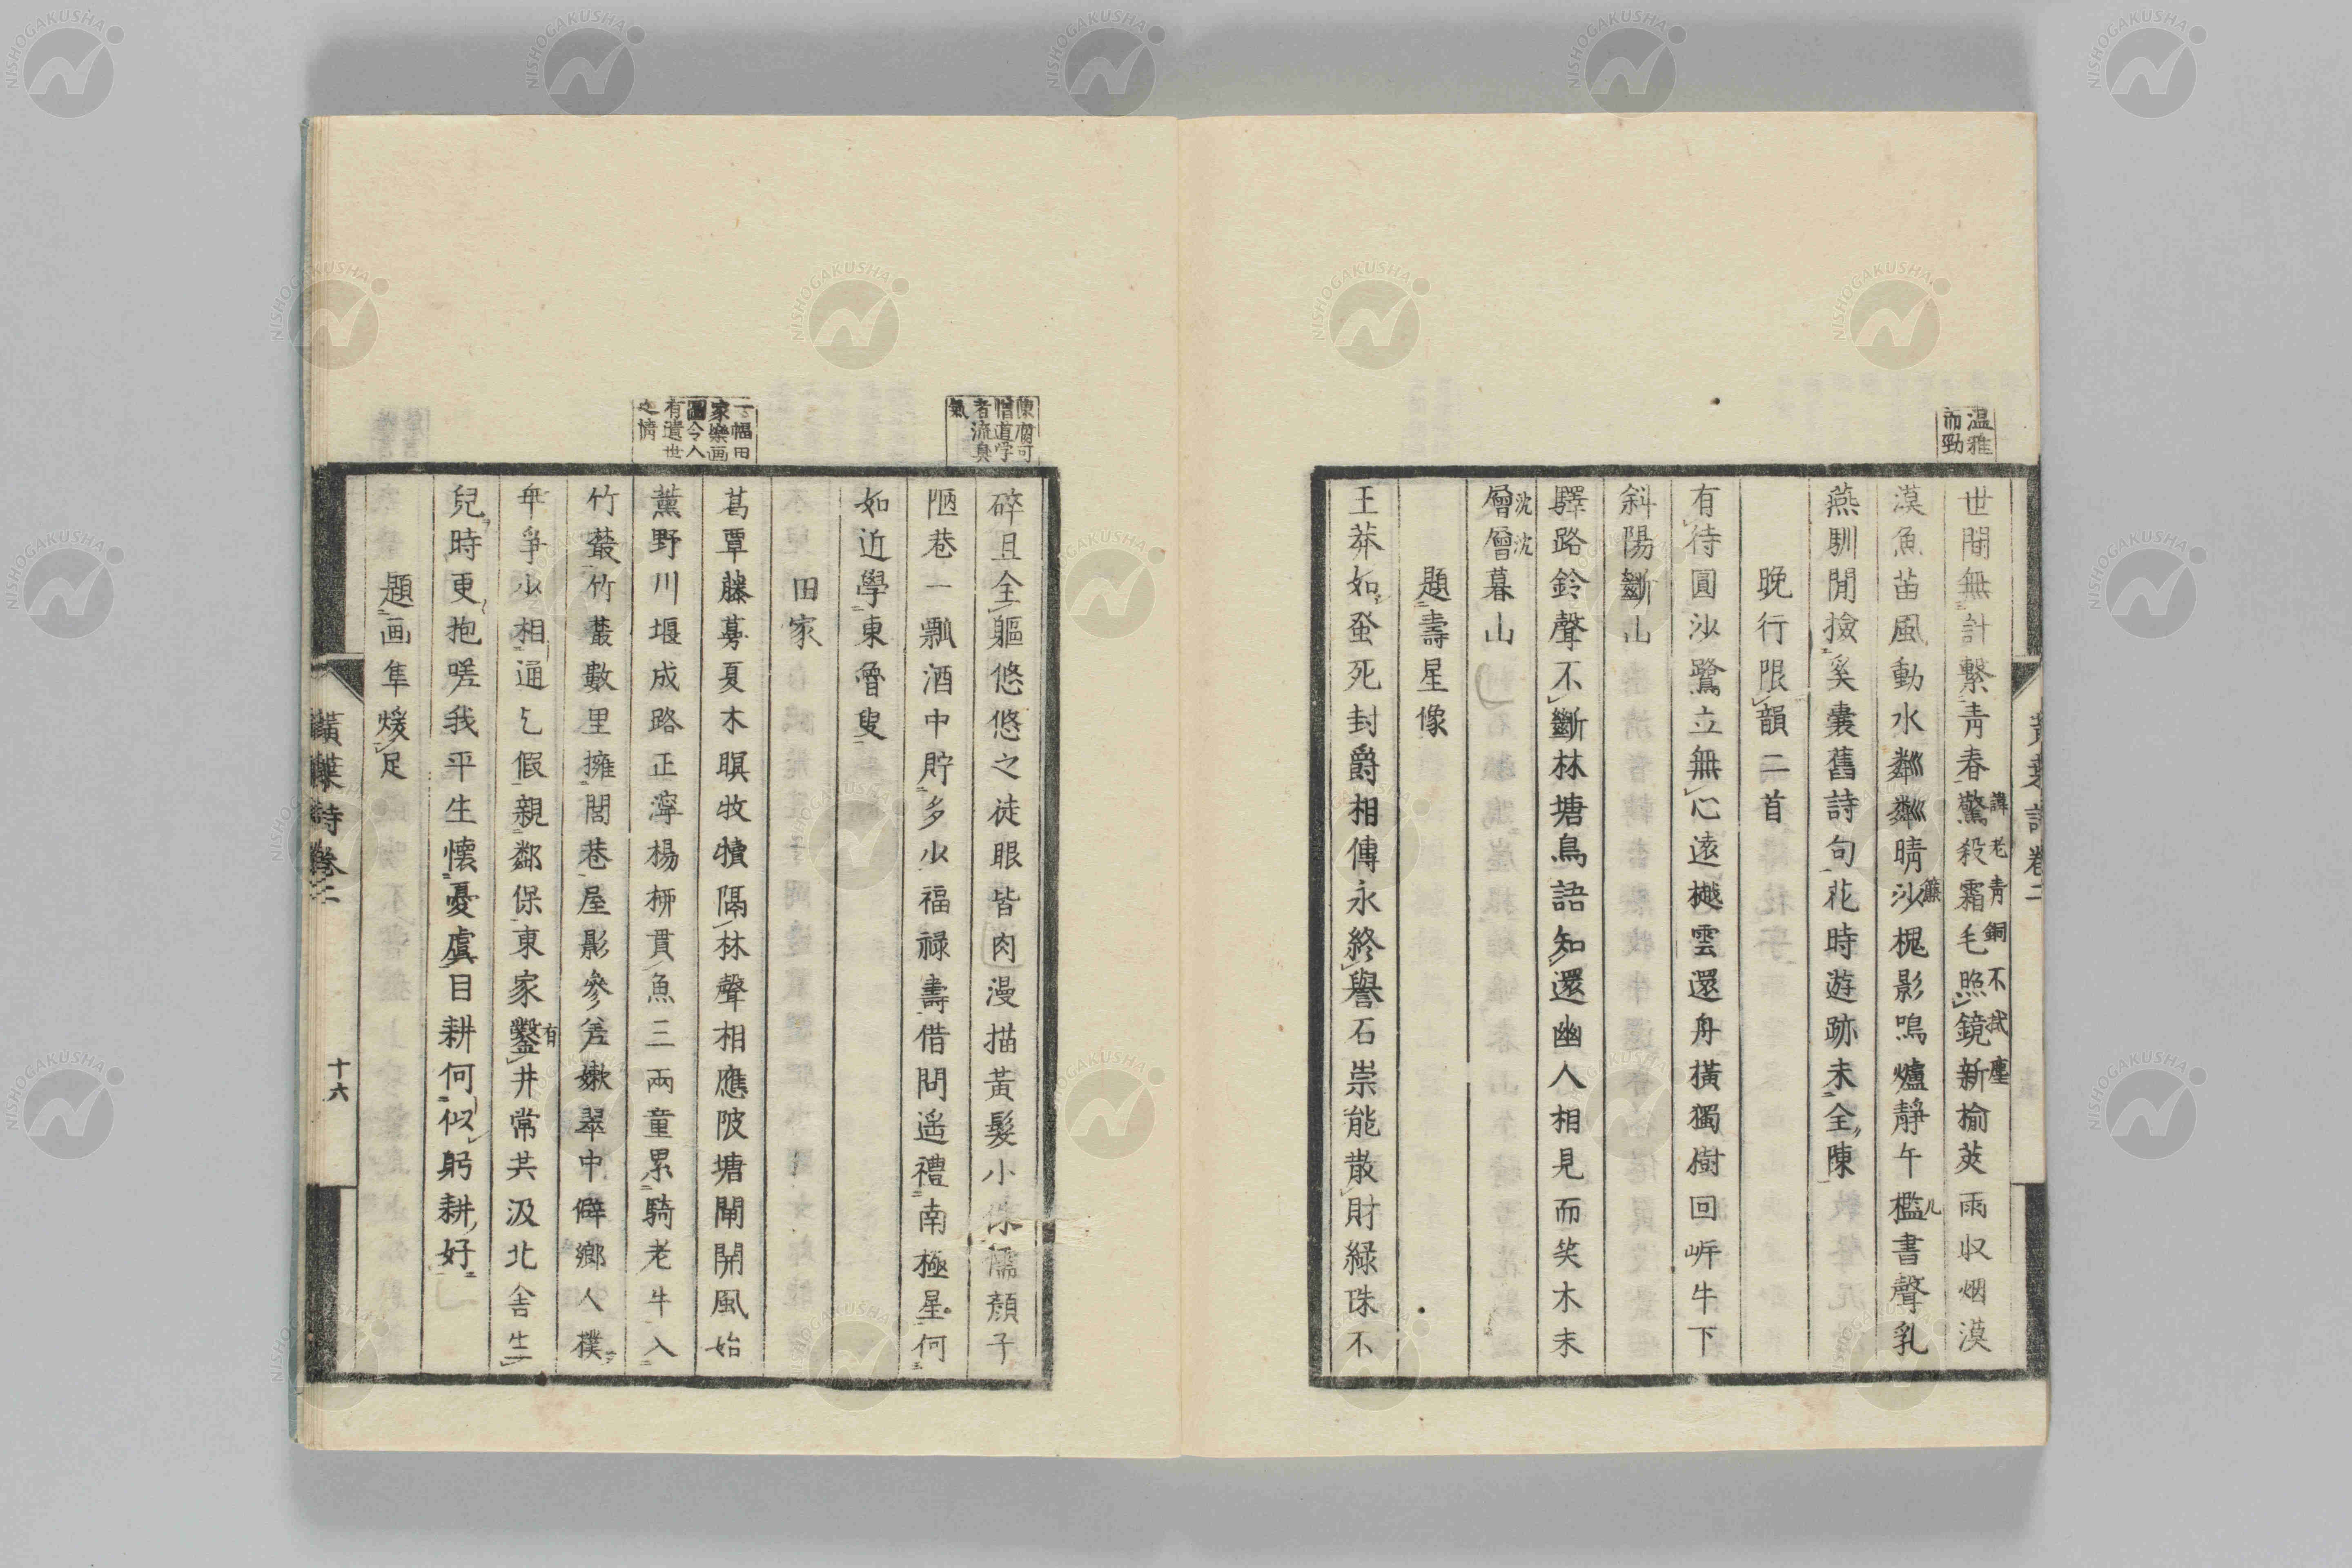 溫雅
而勁
世間無計繫青春驚殺霜毛照鏡新榆莢雨収烟漠
諱老青銅不拭塵
漠魚苗風動水粼粼晴沙槐影鳴爐靜午檻書聲乳
簾
几
燕馴閒撿奚囊舊詩句花時遊跡未全陳
晚行限韻二首
有待圓沙鷺立無心遠樾雲還舟橫獨樹回岸牛下
斜陽斷山
驛路鈴聲不斷林塘鳥語知還幽人相見而笑木末
層層暮山
沈沈
題壽星像
王莽如蚤死封爵相傳永終譽石崇能散財綠珠不
黃葉詩卷二
陳腐可
憎道学
者流臭
氣
碎且全軀悠悠之徒眼皆肉漫描黃髮小侏儒顏子
陋巷一瓢酒中貯多少福祿壽借問遙禮南極星何
如近學東魯叟
田家
一幅田
家樂画
圖令人
有遺世
之情
葛覃藤蔓夏木暝牧犢隔林聲相應陂塘閘開風始
薰野川堰成路正濘楊柳貫魚三兩童累騎老牛入
竹叢竹叢數里擁閭巷屋影參差嫩翠中僻鄉人樸
年爭少相通乞假親鄰保東家鑿井常共汲北舍生
有
兒時更抱嗟我平生懷憂虞目耕何似躬耕好
題画隼煖足
黃葉詩卷二
十六
NISHOGAKUSHA